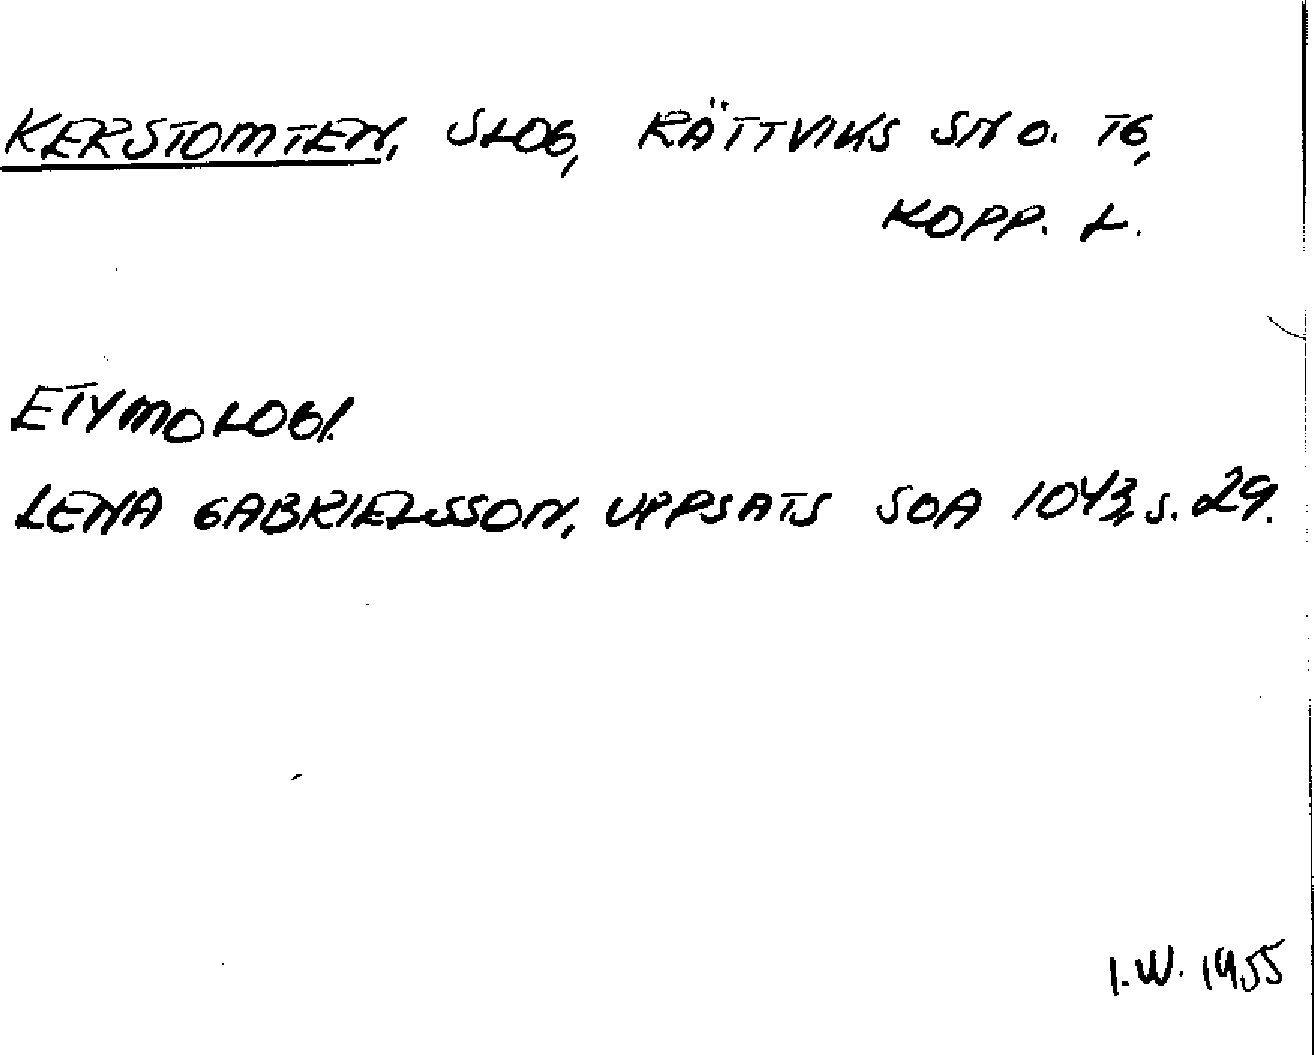 KERSTOMTEN, SLOG, RÄTTVIKS SN O. TG,
KOPP. L.
ETYMOLOGI.
LENA GABRIELSSON, UPPSATS SOA 1043, S. 29.
I.W. 1955